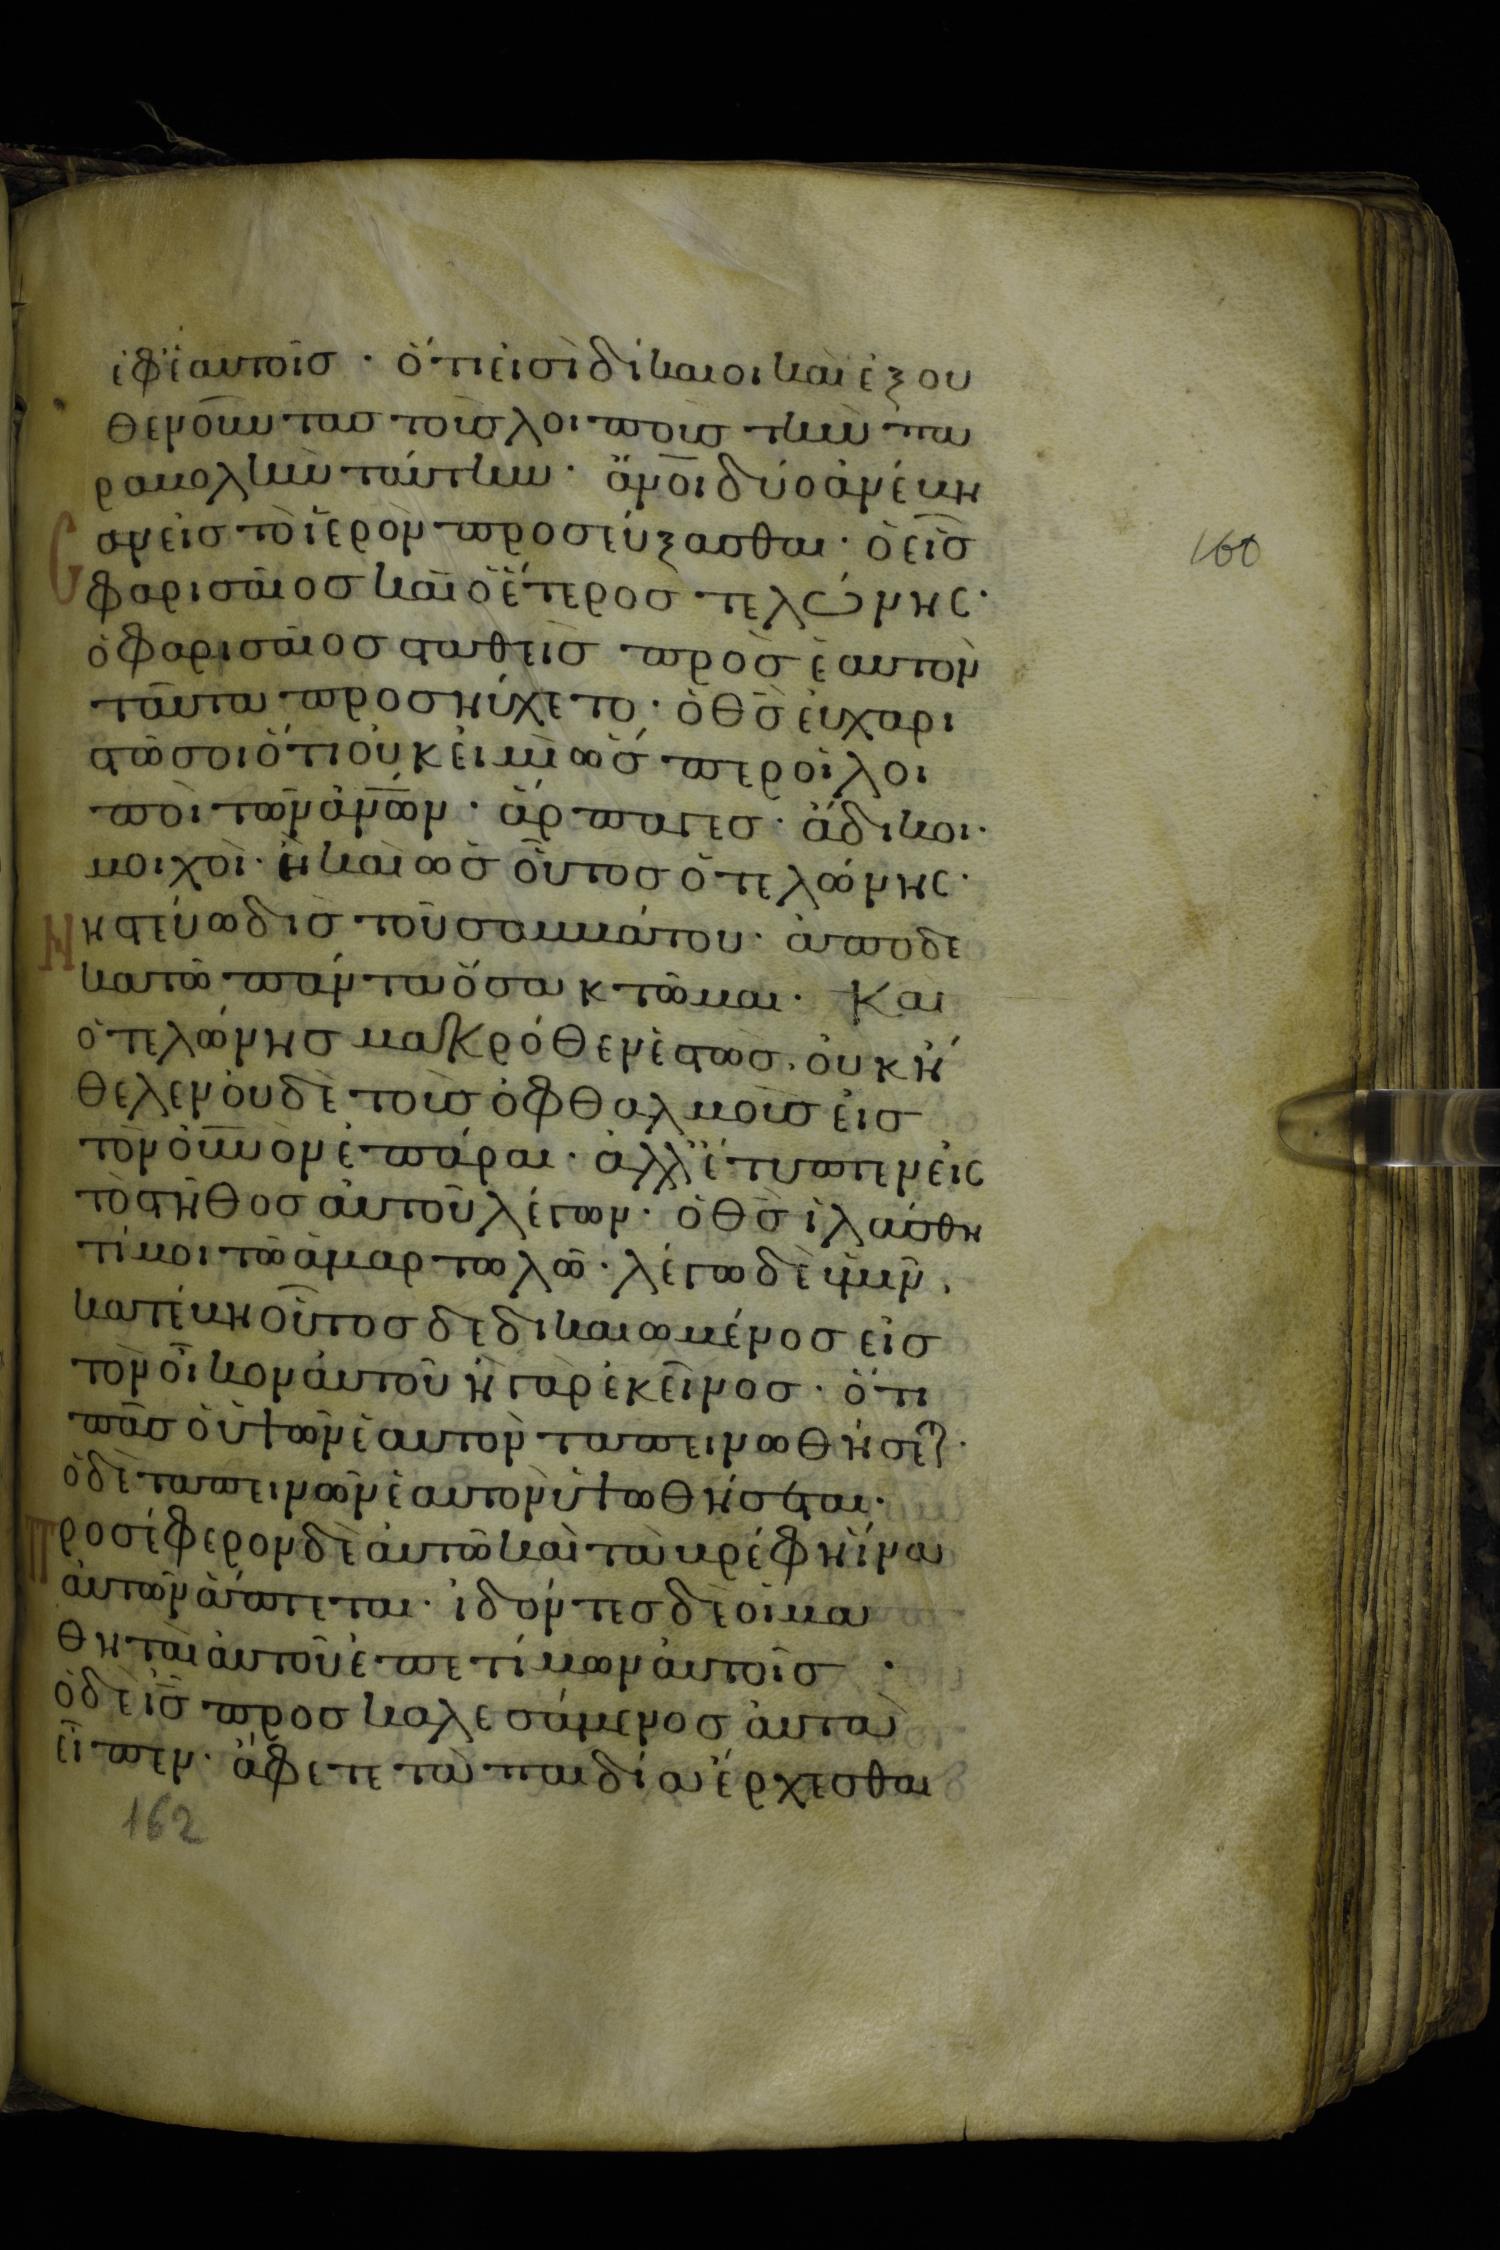 ἐφἑαυτοῖσ · ὅτι εἰσὶ δίκαιοι καὶ ἐξου
θενοῦντασ τοὺσ λοιποὺσ τῶν πα
ρακολῶν ταύτων · ἄνοι δύο ἀνέβη
σαν εἰσ τὸ ἱερὸν προσεύξασθαι · ὁ εἷσ
160
φαρισαῖοσ καὶ ὁ ἕτεροσ τελώνης ·
ὁ φαρισαῖοσ σταθεὶσ πρὸσ ἑαυτὸν
ταῦτα προσηύχετο · ὁ θσ εὐχαρι
στῶ σοι ὅτι οὐκ εἰμὶ ὥσπερ οἱ λοι
ποὶ τῶν ἀνῶν · ἅρπαγεσ · ἄδικοι ·
μοιχοὶ · ἢ καὶ ὡσ οὗτοσ ὁ τελώνης ·
νηστεύω δὶσ τοῦ σαββάτου · ἀποδε
κατῶ πάντα ὅσα κτῶμαι · Και
ὁ τελώνησ μακρόθεν ἑστὼσ · οὐκ ἤ
θελεν οὐδὲ τοὺσ ὀφθαλμοὺσ εἰσ
τὸν οὐνον ἐπάραι · ἀλλἔτυπτεν εἰς
τὸ στῆθοσ αὐτοῦ λέγων · ὁ θσ ἱλάσθη
τί μοι τῶ ἁμαρτωλῶ · λέγω δὲ ὑμῖν ·
κατέβη οὗτοσ δεδικαιωμένοσ εἰσ
τὸν οἶκον αὐτοῦ ἢ γὰρ ἐκεῖνοσ · ὅτι
πᾶσ ὁ ὑψῶν ἑαυτὸν ταπεινωθήσετ ·
ὁ δὲ ταπεινῶν ἑαυτὸν ὑψωθήσεται ·
Προσέφερον δὲ αὐτῶ καὶ τὰ βρέφη ἵνα
αὐτῶν ἅπτεται · ἰδόντεσ δὲ οἱ μα
θηταὶ αὐτοῦ ἐπετίμων αὐτοῖσ ·
ὁ δὲ ἰσ προσκαλεσάμενοσ αὐτὰ
εἶπεν · ἄφετε τὰ παιδία ἔρχεσθαι
162